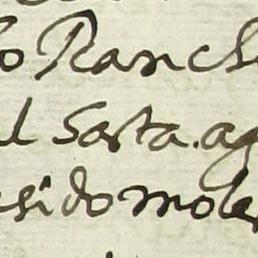 lo Ranch
el Sarta. ag
esido moles